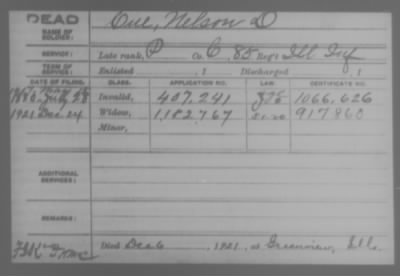 DEAD
NAME OF SOLDIER: Cue, Nelson D
SERVICE: Late rank, P Co. C, 85 Reg't Ill Inf
TERM OF SERVICE: Enlisted , 1 Discharged , 1
DATE OF FILING. CLASS. APPLICATION NO. CERTIFICATE NO.
July 28 Invalid, 407,241 1066,626
1921 Dec 24 Widow, 1,182,767 917860
Minor,
ADDITIONAL SERVICES:
REMARKS:
Died Dec 6, 1921, at Greenview, Ills.